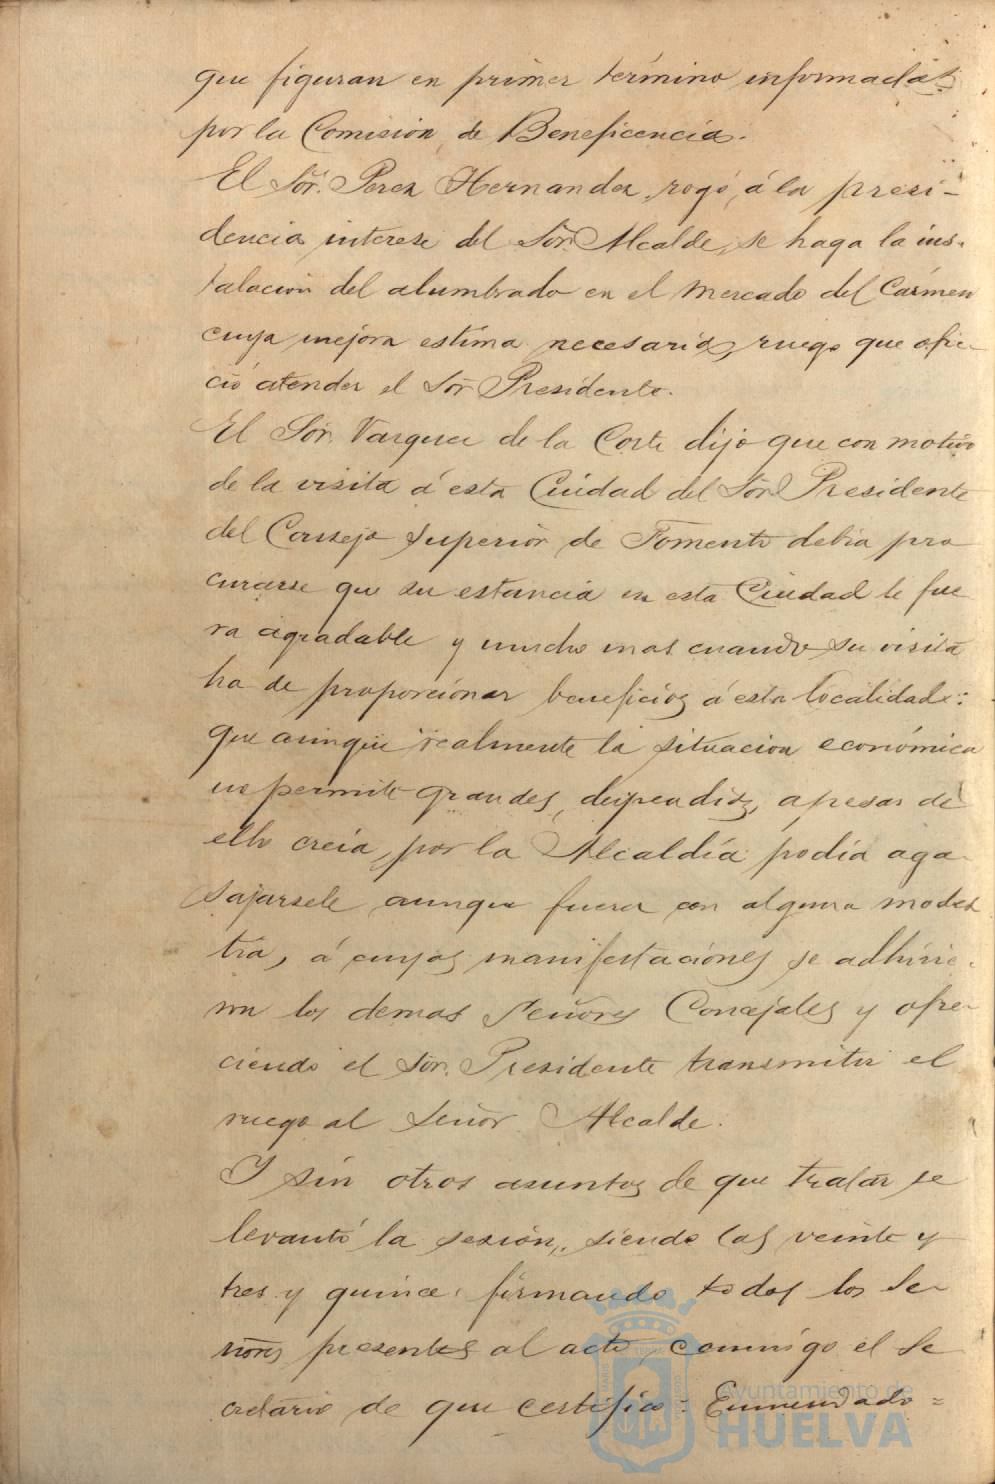 que figuran en primer término informadas
por la Comisión de Beneficencia.
El Sór. Perez Hernandez, rogó, á la presi-
dencia interese del Sór. Alcalde, se haga la ins-
talacion del alumbrado en el Mercado del Cármen
cuya mejora estima necesaria, ruego que ofre-
ció atender el Sór Presidente.
El Sór. Vazquez de la Corte dijo que con motivo
de la visita á esta Ciudad del Sór. Presidente
del Consejo Superior de Fomento debia pro
curarse que su estancia en esta Ciudad le fue
ra agradable y mucho mas cuando su visita
ha de proporcionar beneficios á esta localidad:
que aunque realmente la situacion económica
no permite grandes dispendios, apesar de
ello creía, por la Alcaldía podia aga-
sajarsele aunque fuera con alguna modes
tia, á cuyas manifestaciones se adhirie-
ron los demas Señores Concejales y ofre-
ciendo el Sór. Presidente transmitir el
ruego al Señor Alcalde.
Y sin otros asuntos de que tratar se
levantó la sesión, siendo las veinte y
tres y quince, firmando todos los Se-
ñores presentes al acto, conmigo el Se
cretario de que certifico: Enmendado=
Ayuntamiento de
HUELVA